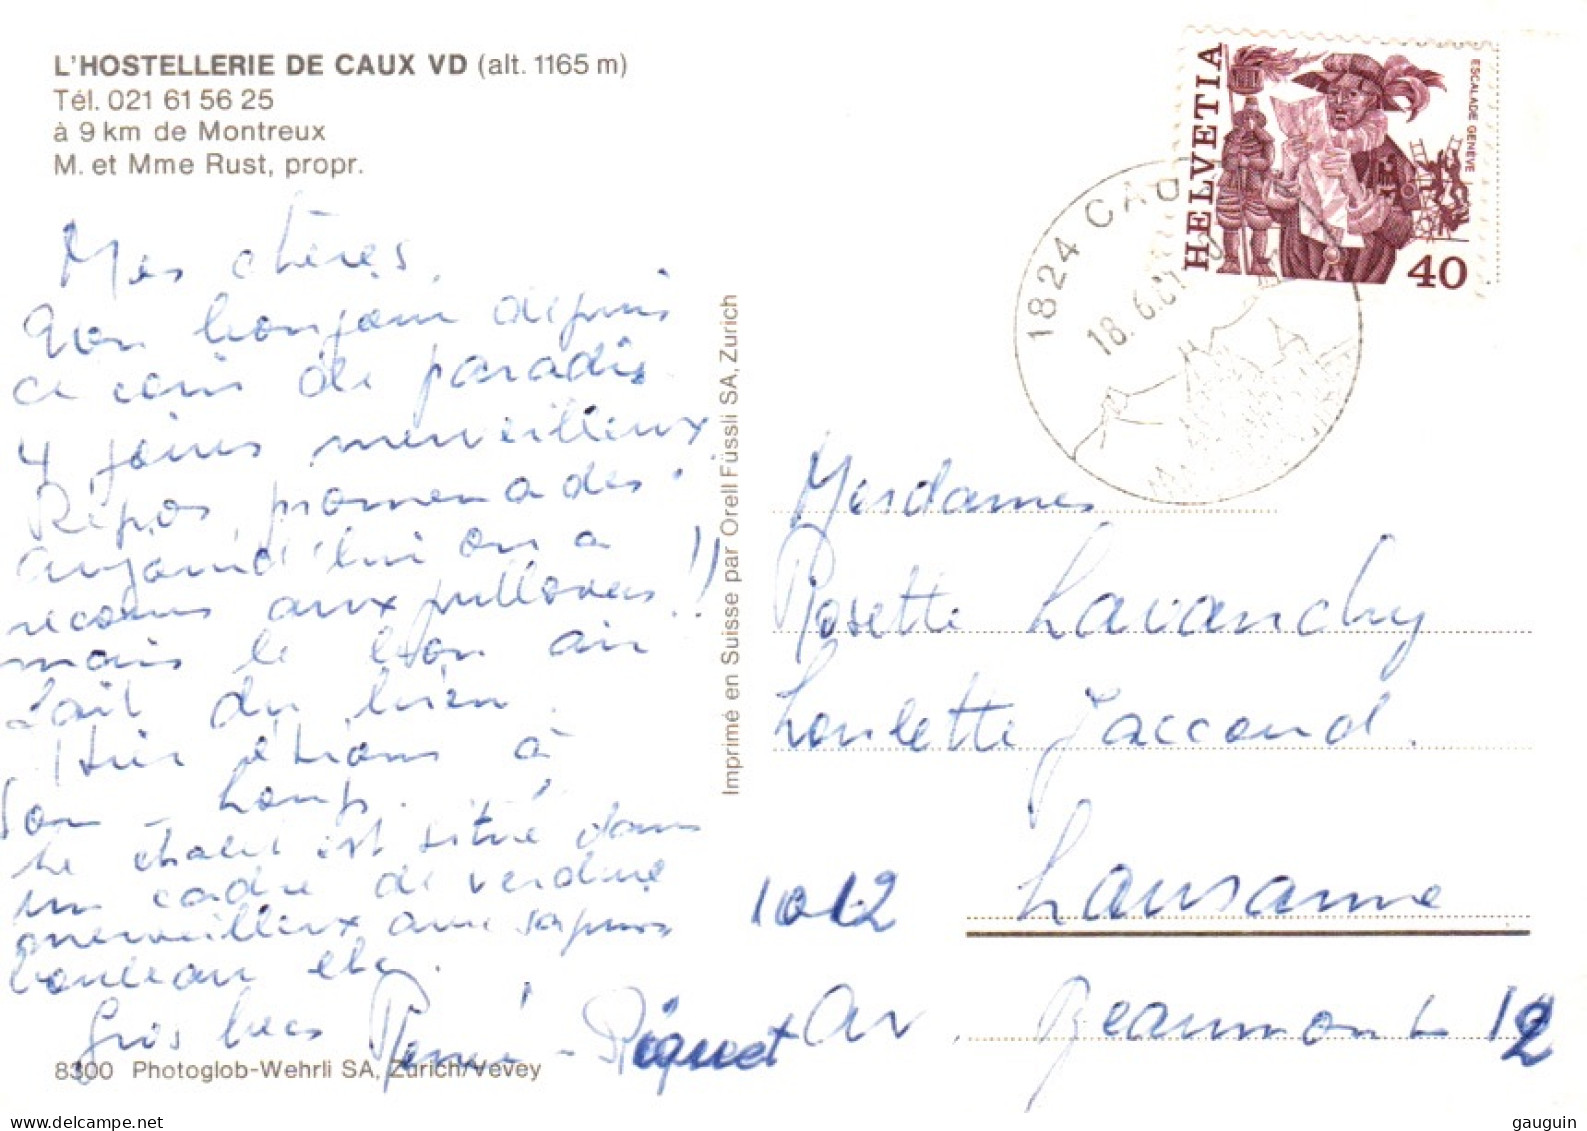 L'HOSTELLERIE DE CAUX VD (alt. 1165 m)
Tél. 021 61 56 25
à 9 km de Montreux
M. et Mme Rust, propr.
Mes chères,
bonjour depuis
ce coin de paradis.
4 jours merveilleux.
Repos, promenades.
aujourd'hui on a
recours aux pullovers!!
mais le bon air
fait du bien.
Hier étions à
Son-Loup.
Le chalet est situé dans
un cadre de verdure
merveilleux avec sapins
bouleau etc.
Gros becs René - Piquet
8300 Photoglob-Wehrli SA, Zürich/Vevey
Imprimé en Suisse par Orell Füssli SA, Zurich
HELVETIA
ESCALADE GENÈVE
40
1824 CAUX
18.6.81
Mesdames
Rosette Lavanchy
Loulette Jaccoud.
1012 Lausanne
Av. Beaumont 12
www.delcampe.net
gauguin